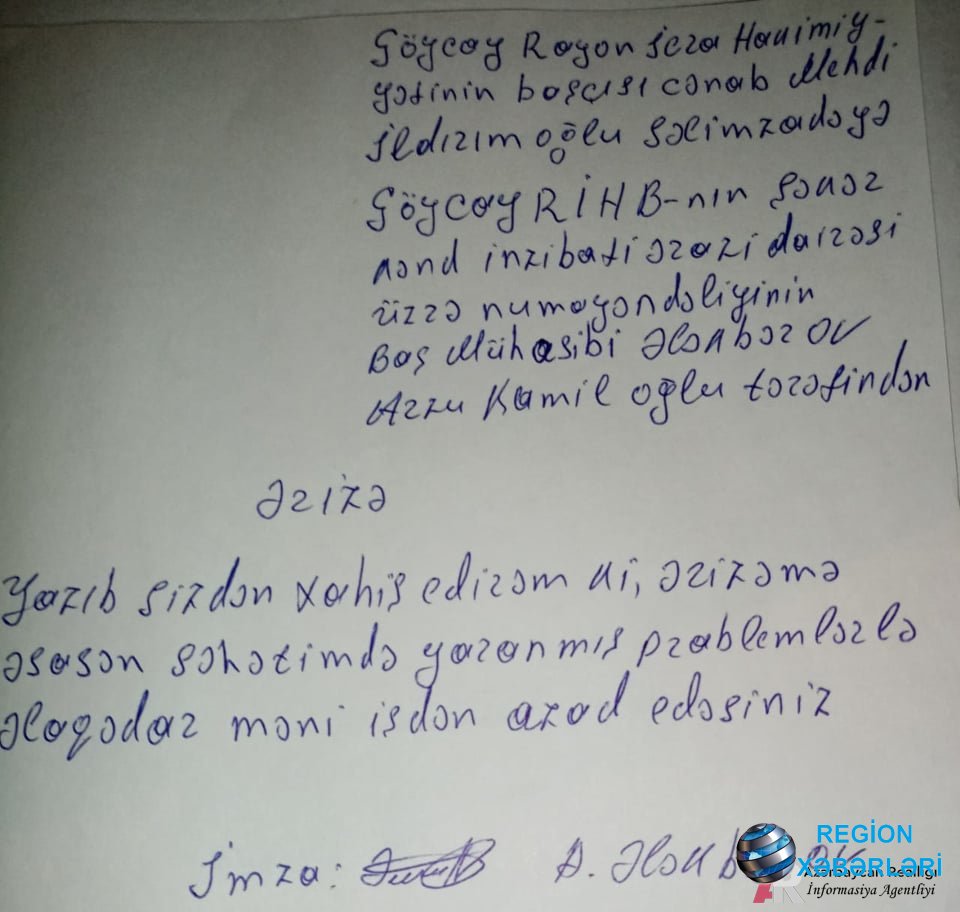 Göycay Rayon icra Hakimiy-
yətinin başçısı cənab Mehdi
ildırım oğlu Səlimzadəyə
Göycay RİHB-nın Şəkər
kənd inzibati ərazi dairəsi
üzrə numayəndəliyinin
Baş Mühasibi Ələkbərov
Arzu Kamil oğlu tərəfindən
Ərizə
Yazıb sizdən xahiş edirəm ki, ərizəmə
əsasən səhətimdə yaranmış problemlərlə
əlaqədar məni isdən azad edəsiniz
İmza: A. Ələkb
REGİON
XƏBƏRLƏRİ
Azərbaycan Reallığı
İnformasiya Agentliyi